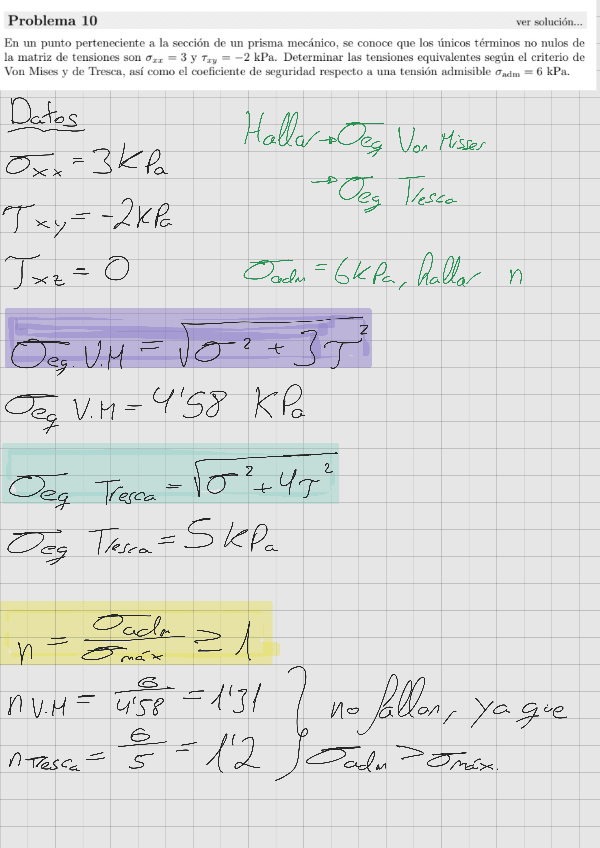 Problema 10 ver solución...
En un punto perteneciente a la sección de un prisma mecánico, se conoce que los únicos términos no nulos de
la matriz de tensiones son σxx = 3 y τxy = −2 kPa. Determinar las tensiones equivalentes según el criterio de
Von Mises y de Tresca, así como el coeficiente de seguridad respecto a una tensión admisible σadm = 6 kPa.
Datos
Hallar → σeq Von Misses
→ σeq Tresca
σxx = 3 KPa
τxy = -2 KPa
τxz = 0
σadm = 6 KPa, hallar n
σeq. V.M = √(σ² + 3τ²)
σeq V.M = 4'58 KPa
σeq Tresca = √(σ² + 4τ²)
σeq Tresca = 5 KPa
n = σadm / σmáx ≥ 1
n V.M = 6 / 4'58 = 1'31
n Tresca = 6 / 5 = 1'2
} no fallan, ya que
σadm > σmáx.